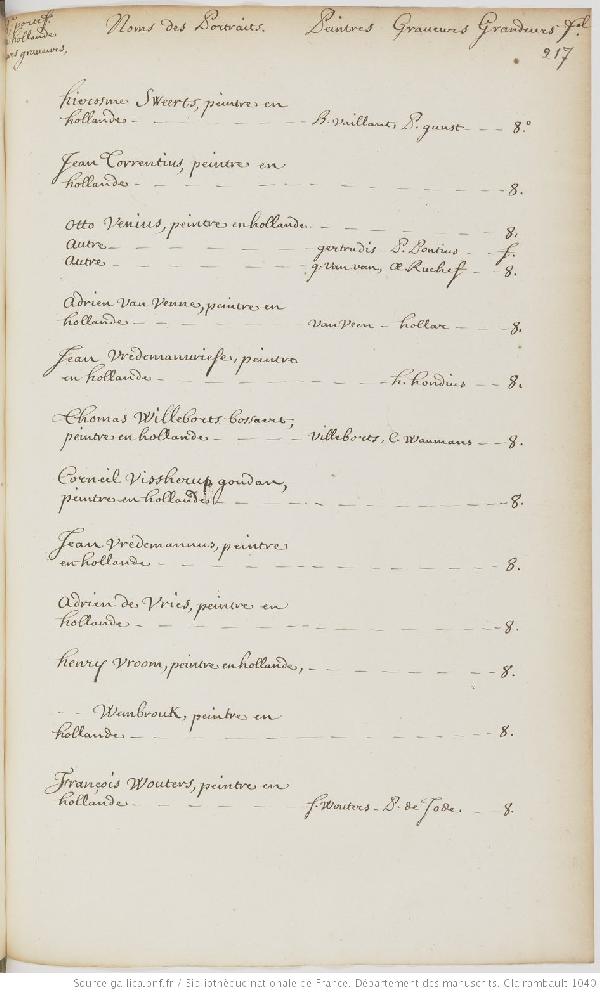 portr.
hollande
graveurs,
Noms des Portraits. Peintres Graveurs Grandeurs fol.
217
hierosme Sweerts, peintre en
hollande - - - - - B. Vaillant, P. gunst - - - 8.º
Jean Torrentius, peintre en
hollande - - - - - - - - 8.
Otto Venius, peintre en hollande - - - - 8.
Autre - - - - gertrudis P. Pontius - f.
Autre - - - - g. Van van, Æ. Ruchef - 8.
Adrien Van Venne, peintre en
hollande - - - - Van Veen - hollar - - 8.
Jean Vredemanvriese, peintre
en hollande - - - - - h. hondius - - 8.
Thomas Willeborts bossaert,
peintre en hollande - - - - Villeborts, C. Waumans - - 8.
Corneil Visscherus goudan,
peintre en hollande - - - - - - 8.
Jean Vredemannus, peintre
en hollande - - - - - - - 8.
Adrien de Vries, peintre en
hollande - - - - - - - - 8.
henry Vroom, peintre en hollande, - - - - 8.
- - Wanbrouk, peintre en
hollande - - - - - - - - 8.
François Wouters, peintre en
hollande - - - - f. Wouters - P. de Jode. - - 8.
Source gallica.bnf.fr / Bibliothèque nationale de France. Département des manuscrits. Clairambault 1040